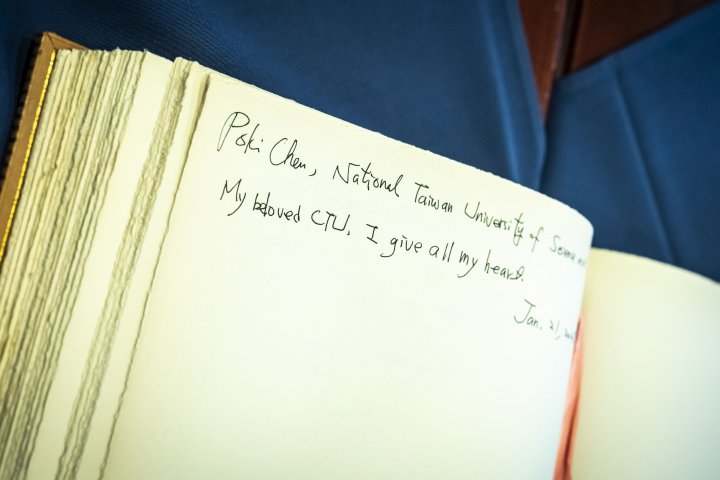 Poki Chen, National Taiwan University of Science
My beloved CTU, I give all my heart.
Jan. 21,